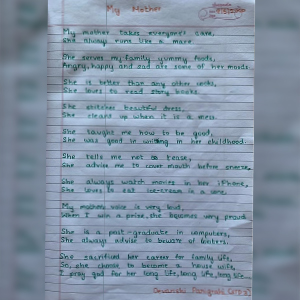 My Mother
My mother takes everyone's care,
She always runs like a mare.
She serves my family yummy foods,
Angry, happy and sad are some of her moods.
She is better than any other cooks,
She loves to read story books.
She stitches beautiful dress,
She cleans up when it is a mess.
She taught me how to be good,
She was good in writing in her childhood.
She tells me not to tease,
She advise me to court mouth before sneeze.
She always watch movies in her iPhone,
She loves to eat ice-cream in a cone.
My mother voice is very loud,
When I win a prize, she becomes very proud.
She is a post-graduate in computers,
She always advise to beware of looters.
She sacrificed her career for family life,
So, she choose to become a house wife,
I pray god for her long life, long life, long life